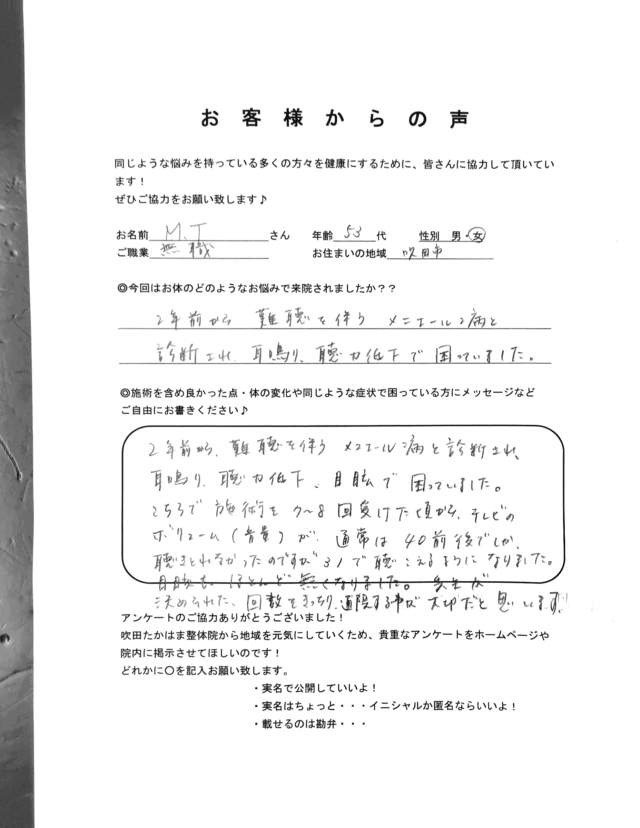 お客様からの声
同じような悩みを持っている多くの方々を健康にするために、皆さんに協力して頂いてい
ます！
ぜひご協力をお願い致します♪
お名前 M.T さん 年齢 53 代 性別 男・女
ご職業 無職 お住まいの地域 吹田市
◎今回はお体のどのようなお悩みで来院されましたか？？
2年前から 難聴を伴う メニエール病と
診断され、耳鳴り、聴力低下で困っていました。
◎施術を含め良かった点・体の変化や同じような症状で困っている方にメッセージなど
ご自由にお書きください♪
2年前から、難聴を伴う メニエール病と診断され、
耳鳴り、聴力低下、目眩で 困っていました。
こちらで 施術を 7〜8回受けた頃から、テレビの
ボリューム(音量)が、通常は 40前後でしか
聴きとれなかったのですが 31で聴こえるようになりました。
目眩も、ほとんど無くなりました。先生が
決められた、回数をきっちり通院する事が大切だと思います!!
アンケートのご協力ありがとうございました！
吹田たかはま整体院から地域を元気にしていくため、貴重なアンケートをホームページや
院内に掲示させてほしいのです！
どれかに〇を記入お願い致します。
・実名で公開していいよ！
・実名はちょっと・・・イニシャルか匿名ならいいよ！
・載せるのは勘弁・・・